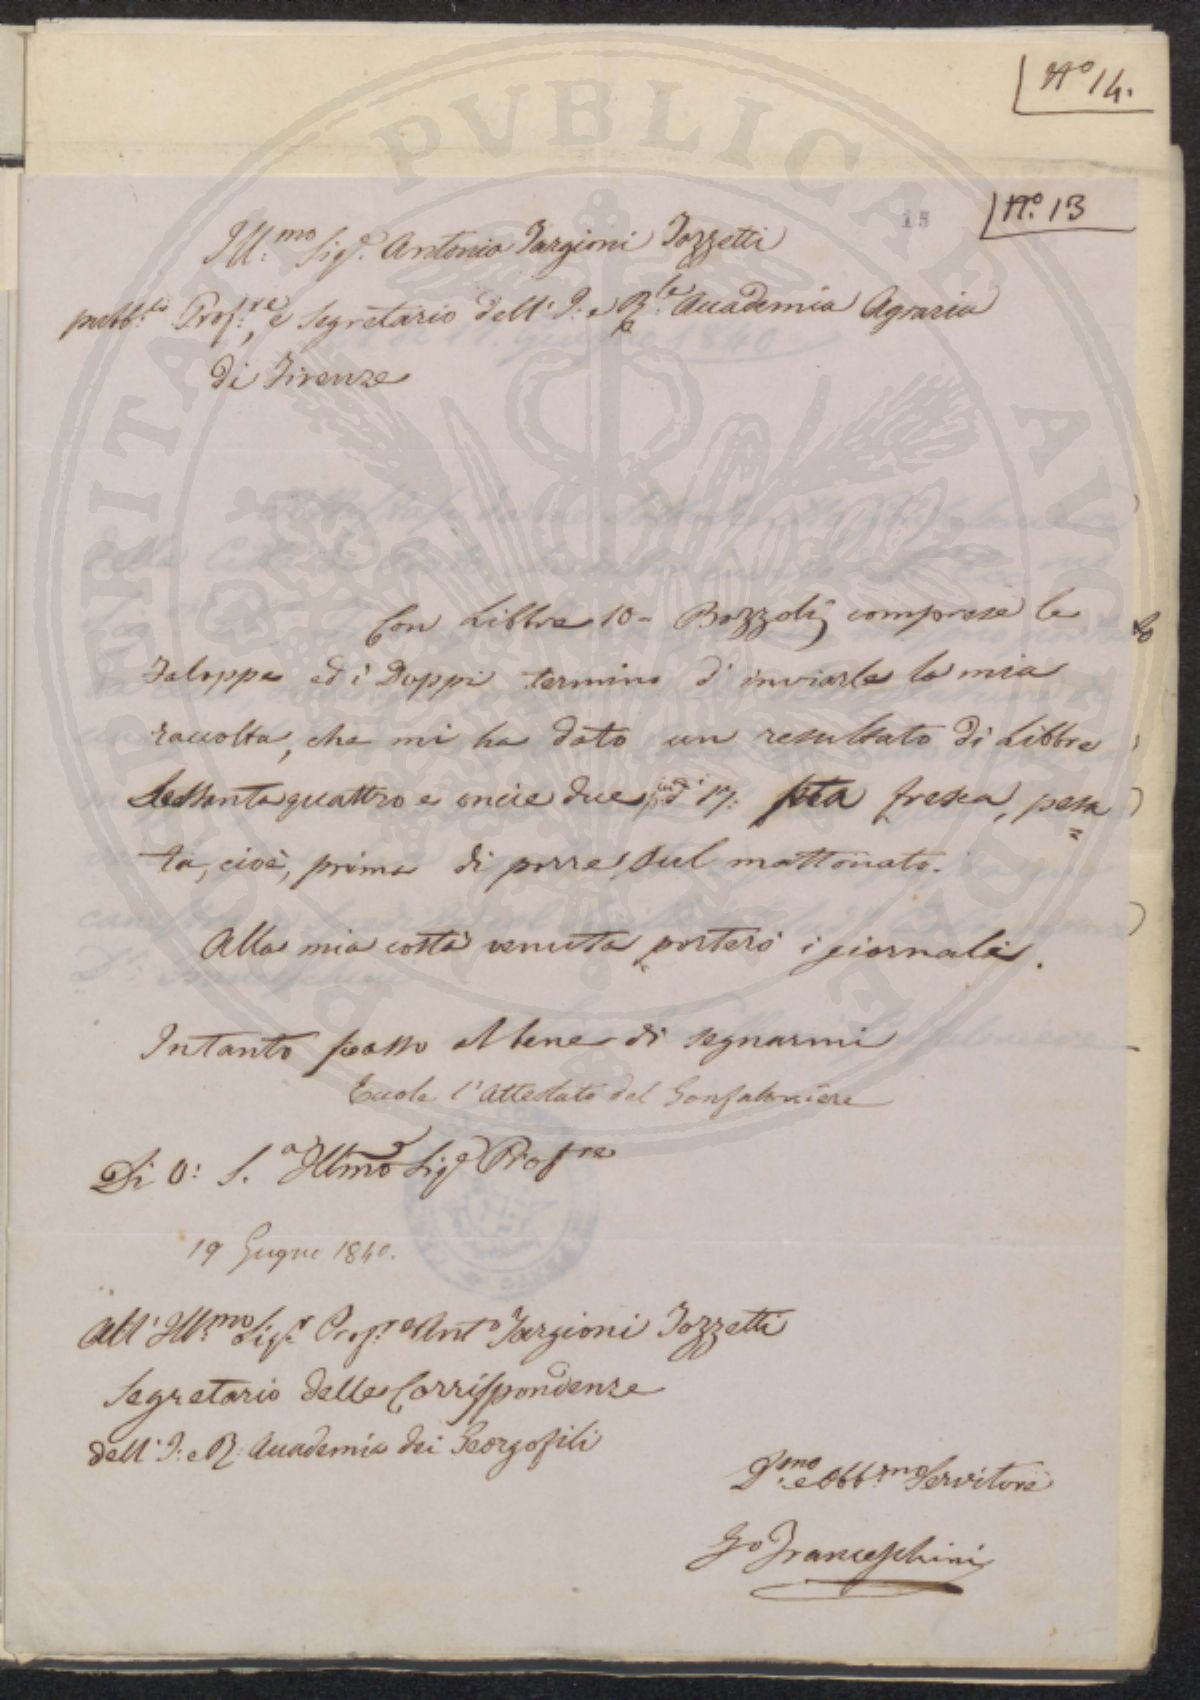 N.º 14.
N.º 13
15
Ill:mo Sigr. Antonio Targioni Tozzetti
pubb:co Prof:re, e Segretario dell' I: e R:le Accademia Agraria
di Firenze
Con Libbre 10 = Bozzoli, comprese le
Faloppe ed i Doppi termino d' inviarle la mia
raccolta, che mi ha dato un resultato di Libbre
Sessantaquattro e oncie due di 17: seta fresca, pesa
=
ta, cioè, prima di porre sul mattonato.
Alla mia costà venuta porterò i giornali.
Intanto passo al bene di segnarmi
l'Attestato del Gonfaloniere
Di V: S.a Illma Sigr Profre
19 Giugno 1840.
All' Ill:mo Sigr. Prof:re Anto Targioni Tozzetti
Segretario delle Corrispondenze
dell' I: e R: Accademia dei Georgofili
D:mo e Obb:mo Servitore
Franceschini